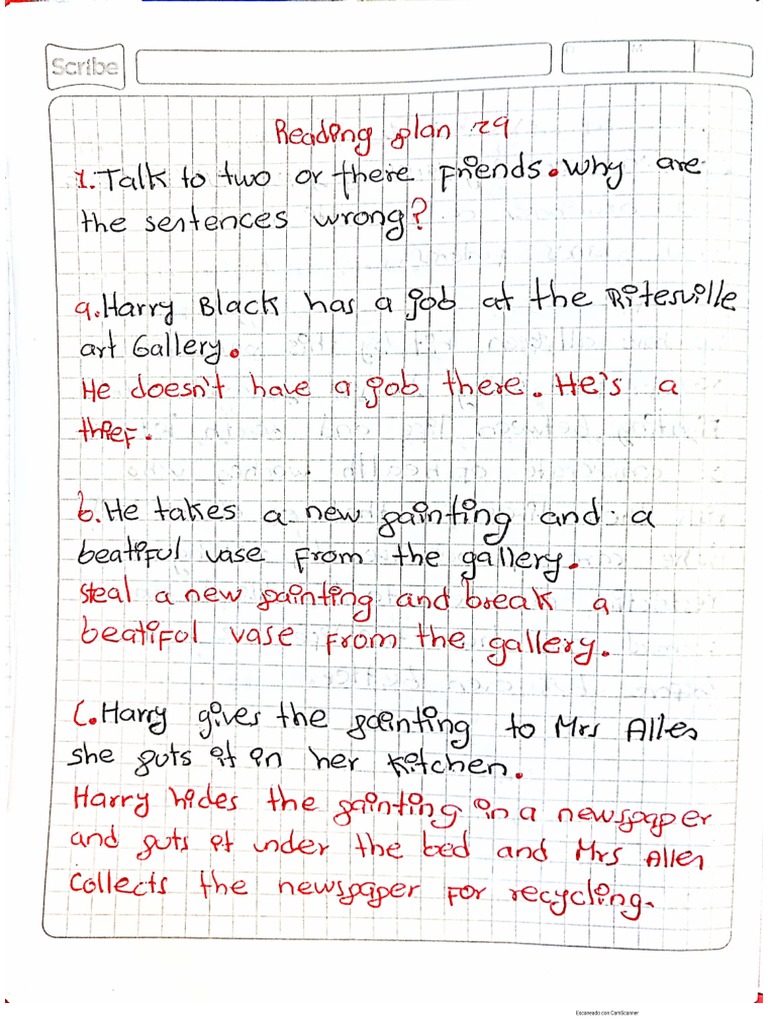 Scribe
Reading plan 29
1. Talk to two or there friends. Why are
the sentences wrong?
a. Harry Black has a job at the Ritesville
art Gallery.
He doesn't have a job there. He's a
thief.
b. He takes a new painting and a
beatiful vase from the gallery.
Steal a new painting and break a
beatifol vase from the gallery.
C. Harry gives the painting to Mrs Allen
she puts it in her kitchen.
Harry hides the painting in a newspaper
and puts it under the bed and Mrs Allen
collects the newspaper for recycling.
Escaneado con CamScanner